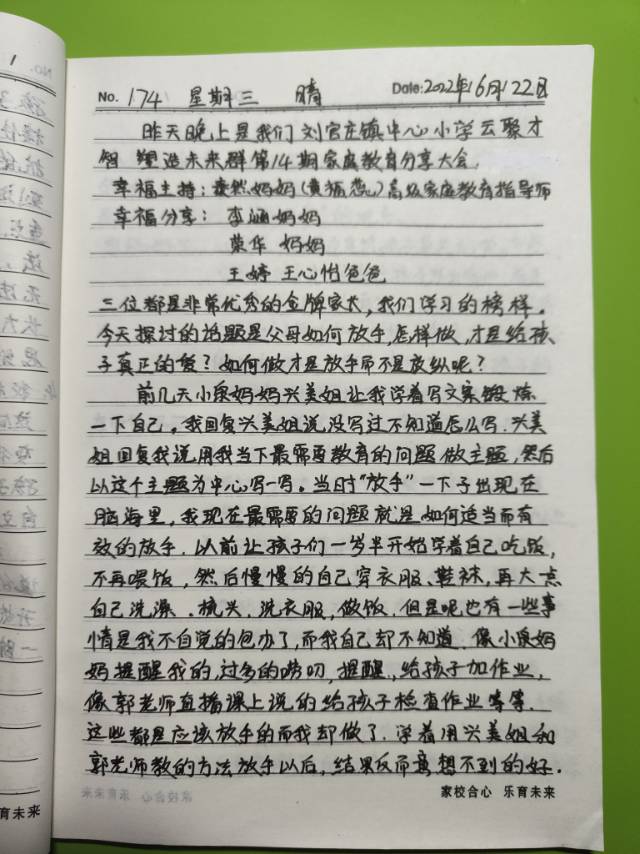 No. 174 星期三 晴 Date: 2022年6月22日
昨天晚上是我们刘官庄镇中心小学云聚才
智 塑造未来群第14期家庭教育分享大会.
幸福主持: 妈妈(黄 )高级家庭教育指导师
幸福分享: 李涵妈妈
荣华 妈妈
王婷 王心怡爸爸
三位都是非常优秀的金牌家长,我们学习的榜样。
今天探讨的话题是父母如何放手,怎样做,才是给孩
子真正的爱?如何做才是放手而不是放纵呢?
前几天小泉妈妈兴美姐让我学着写文案锻炼
一下自己,我回复兴美姐说,没写过不知道怎么写.兴美
姐回复我说,用我当下最需要教育的问题做主题,然后
以这个主题为中心写一写。当时"放手"一下子出现在
脑海里,我现在最需要的问题就是如何适当而有
效的放手.以前让孩子们一岁半开始学着自己吃饭,
不再喂饭,然后慢慢的自己穿衣服、鞋袜,再大点
自己洗澡、梳头、洗衣服,做饭.但是呢也有一些事
情是我不自觉的包办了,而我自己却不知道.像小泉妈
妈提醒我的,过多的唠叨,提醒,给孩子加作业,
像郭老师直播课上说的给孩子检查作业等等.
这些都是应该放手的而我却做了.学着用兴美姐和
郭老师教的方法放手以后,结果反而意想不到的好.
家校合心 乐育未来
育未来